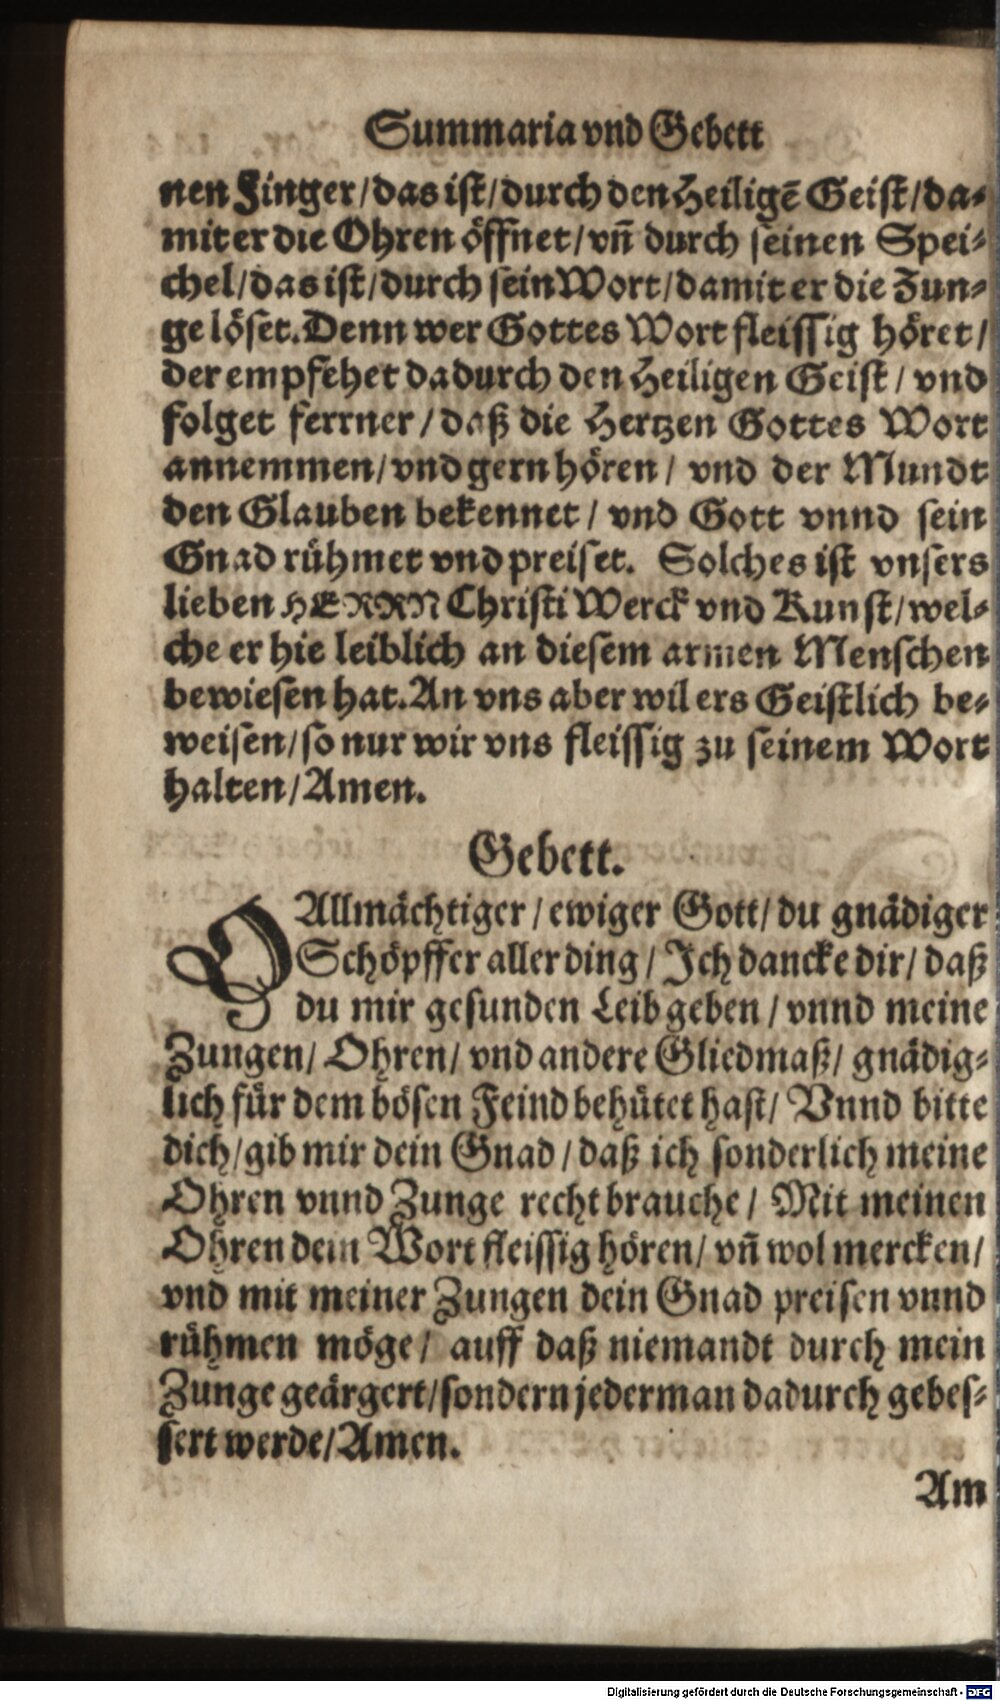 Summaria vnd Gebett
nen Finger/das ist/durch den Heiligē Geist/da-
mit er die Ohren öffnet/vñ durch seinen Spei-
chel/das ist/durch sein Wort/damit er die Zun-
ge löset. Denn wer Gottes Wort fleissig höret/
der empfehet dadurch den Heiligen Geist/vnd
folget ferrner/daß die Hertzen Gottes Wort
annemmen/vnd gern hören/vnd der Mundt
den Glauben bekennet/vnd Gott vnnd sein
Gnad rühmet vnd preiset. Solches ist vnsers
lieben HERRN Christi Werck vnd Kunst/wel-
che er hie leiblich an diesem armen Menschen
bewiesen hat. An vns aber wil ers Geistlich be-
weisen/so nur wir vns fleissig zu seinem Wort
halten/Amen.
Gebett.
O Allmächtiger/ewiger Gott/du gnädiger
Schöpffer aller ding/Ich dancke dir/daß
du mir gesunden Leib geben/vnnd meine
Zungen/Ohren/vnd andere Gliedmaß/gnädig-
lich für dem bösen Feind behütet hast/Vnnd bitte
dich/gib mir dein Gnad/daß ich sonderlich meine
Ohren vnnd Zunge recht brauche/Mit meinen
Ohren dein Wort fleissig hören/vñ wol mercken/
vnd mit meiner Zungen dein Gnad preisen vnnd
rühmen möge/auff daß niemandt durch mein
Zunge geärgert/sondern jederman dadurch gebes-
sert werde/Amen.
Am
Digitalisierung gefördert durch die Deutsche Forschungsgemeinschaft - DFG